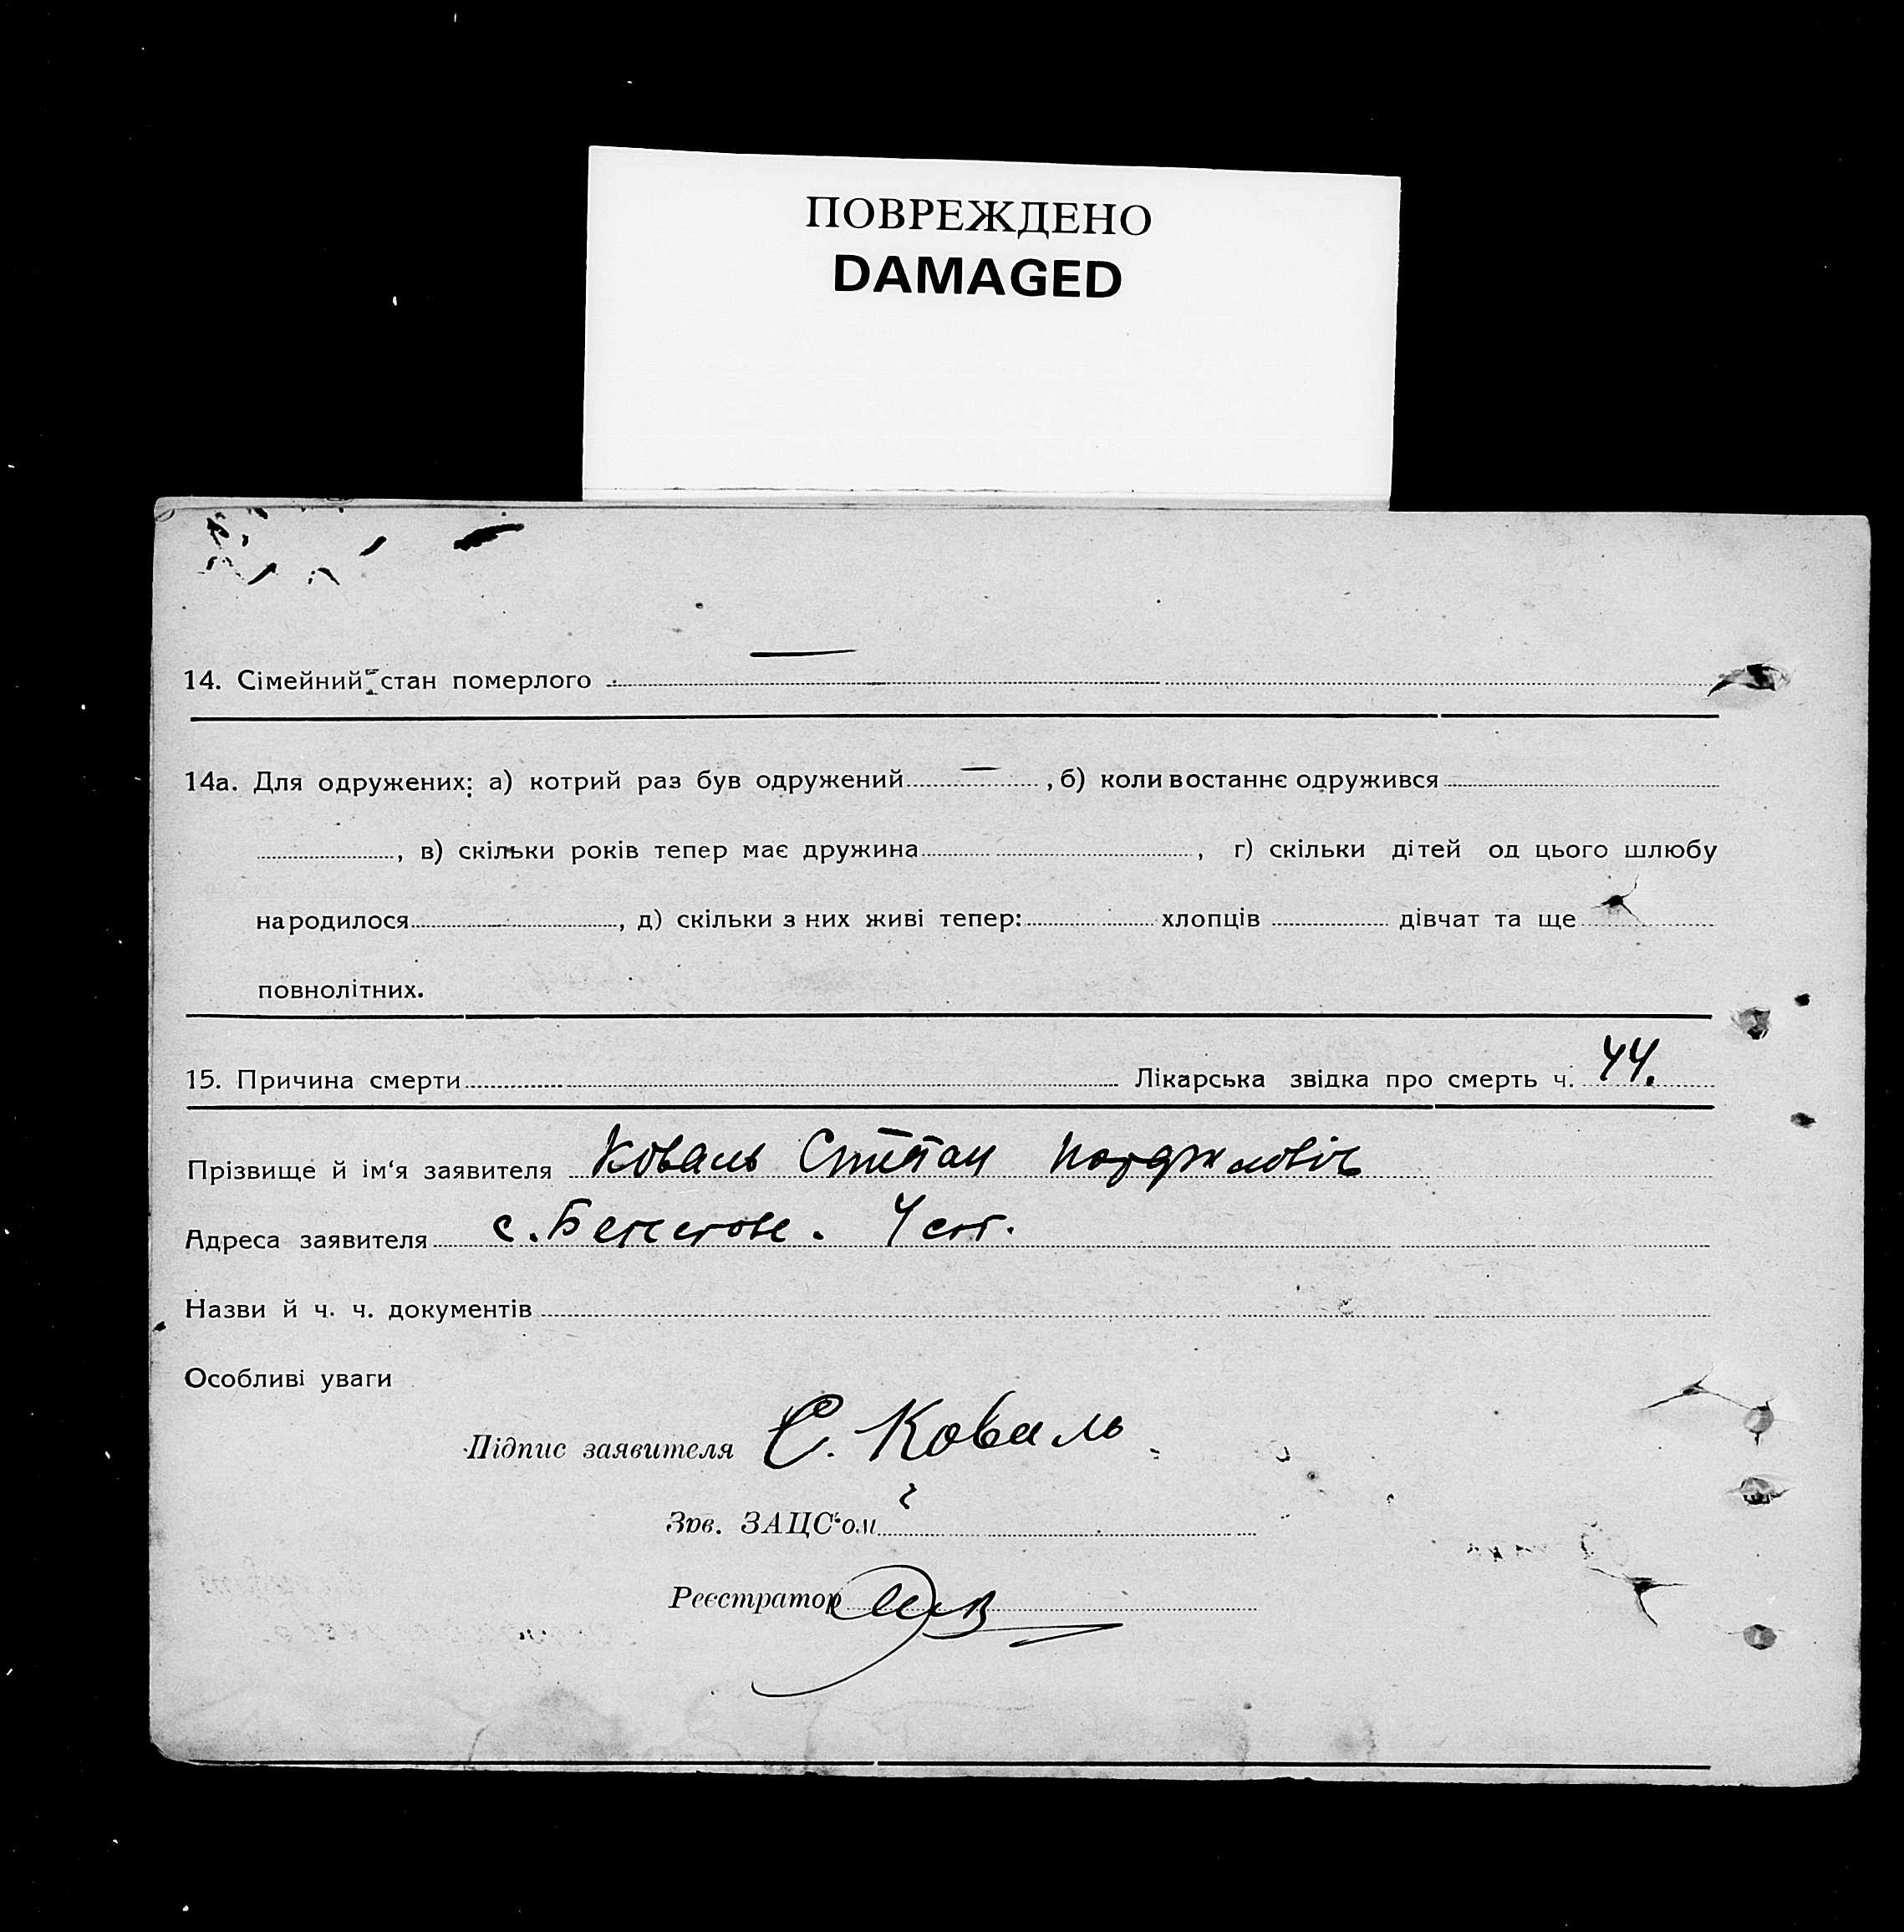 ПОВРЕЖДЕНО
DAMAGED
14. Сімейний стан померлого
14а. Для одружених: а) котрий раз був одружений — , б) коли востаннє одружився
, в) скільки років тепер має дружина , г) скільки дітей од цього шлюбу
народилося , д) скільки з них живі тепер: хлопців дівчат та ще
повнолітних.
15. Причина смерти Лікарська звідка про смерть ч. 44.
Прізвище й ім'я заявителя Коваль Степан
Адреса заявителя с.
Назви й ч. ч. документів
Особливі уваги
Підпис заявителя С. Коваль
Зав. ЗАЦС'ом
Реєстратор